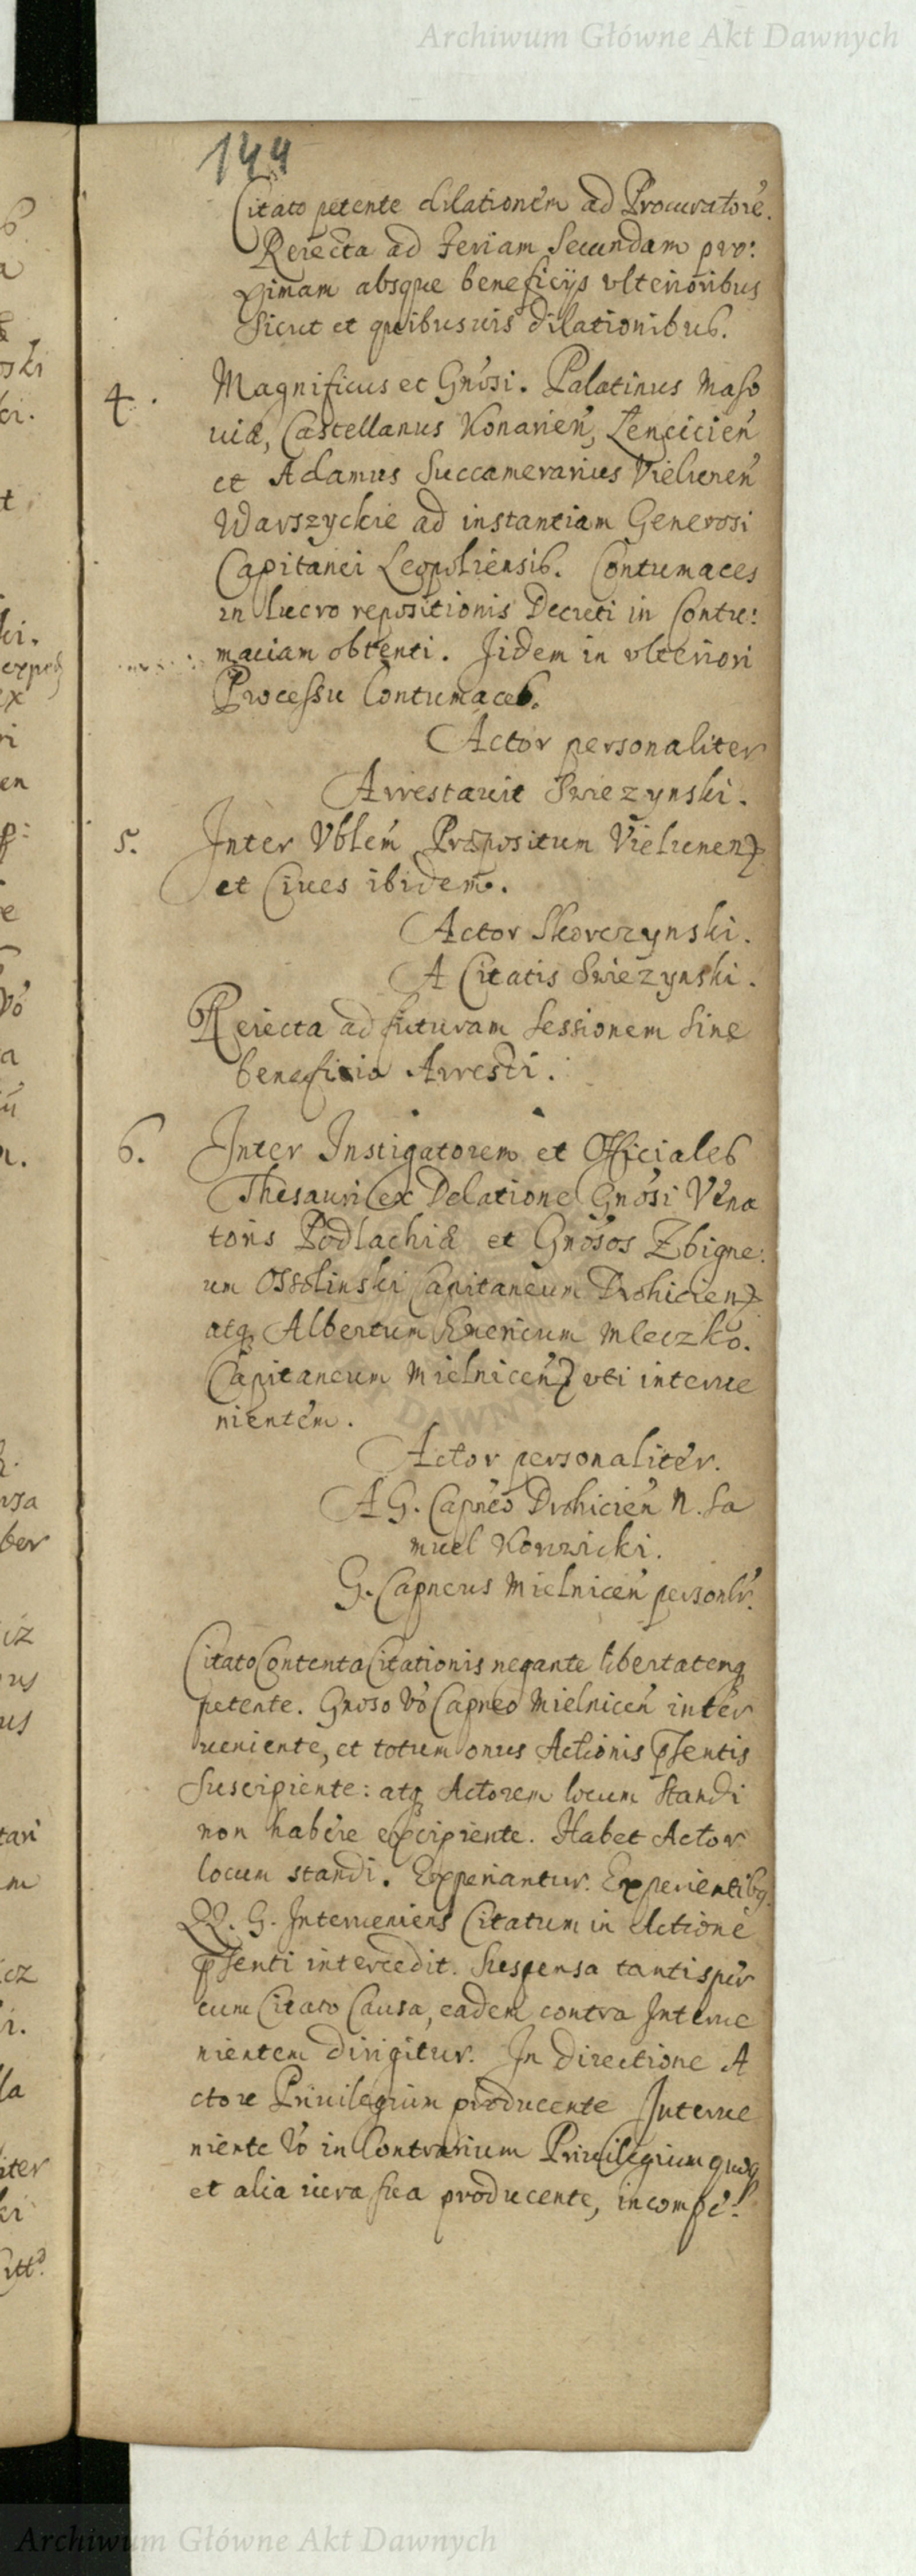 Archiwum Główne Akt Dawnych
144
Citato petente dilationem ad Procuratore.
Reiecta ad Feriam Secundam pro:
ximam absque beneficijs vlterioribus
sicut et quibusuis dilationibus.
4. Magnificus et Gnosi. Palatinus Maso
uiæ, Castellanus Konarien, Lencicien
et Adamus Succamerarius Vielunen
Warszyckie ad instantiam Generosi
Capitanei Leopoliensis. Contumaces
in lucro repositionis Decreti in Contu:
maciam obtenti. Jidem in vlteriori
Processu Contumaces.
Actor personaliter
Arrestauit Swiezynski.
5. Inter Vblem Præpositum Vielunen
et Ciues ibidem.
Actor Skorczynski.
A Citatis Swiezynski.
Reiecta ad futuram Sessionem Sine
beneficio Arresti.
6. Inter Instigatorem et Officiales
Thesauri ex Delatione Gnosi Vena
toris Podlachiæ et Gnosos Zbigne:
um Ossolinski Capitaneum Drohicien
atq Albertum Emericum Mleczko.
Capitaneum Mielnicen vti interue
nientem.
Actor personaliter.
A G. Capneo Drohicien N. Sa
muel Konwicki.
G. Capneus Mielnicen personlr.
Citato Contenta Citationis negante libertatemq
petente. Gnoso Vo Capneo Mielnicen inter
ueniente, et totum onus Actionis pSentis
Suscipiente: atq Actorem locum standi
non habere excipiente. Habet Actor
locum standi. Experiantur. Experientibq
QQ. G. Interueniens Citatum in Actione
pSenti intercedit. Suspensa tantisper
cum Citato Causa, eadem contra Interue
nientem dirigitur. In directione A
ctore Priuilegium producente Interue
niente Vo in Contrarium Priuilegium quoq
et alia iura sua producente,
Archiwum Główne Akt Dawnych